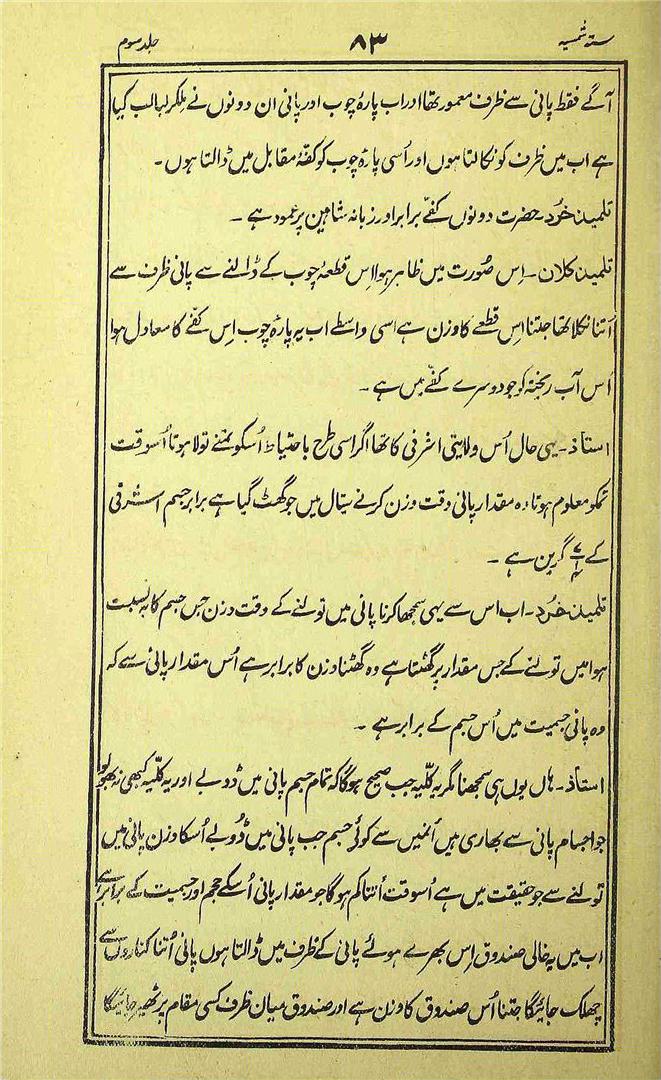 ستہ شمسیہ ۸۳ جلد سوم
آگے فقط پانی سے ظرف معمور تھا اور اب پارۂ چوب اور پانی ان دونوں نے ملکر لبالب کیا
ہے اب میں ظرف کو نکالتا ہوں اور اُسی پارۂ چوب کو کفۂ مقابل میں ڈالتا ہوں۔
تلمیذ خُرد۔ حضرت دونوں کفے برابر اور زبانہ شاہین پر عمود ہے۔
تلمیذ کلان۔ اِس صُورت میں ظاہر ہوا اِس قطعۂ چوب کے ڈالنے سے پانی ظرف سے
اُتنا نکلا تھا جتنا اِس قطعے کا وزن ہے اسی واسطے اب یہ پارۂ چوب اِس کفے کا معادل ہوا
اُس آب ریختہ کو جو دوسرے کفے میں ہے۔
استاذ۔ یہی حال اُس ولایتی اشرفی کا تھا اگر اسی طرح باحتیاط اُسکو ہمنے تولا ہوتا اُسوقت
تمکو معلوم ہوتا وہ مقدار پانی وقت وزن کرنے سیّال میں جو گھٹ گیا ہے برابر جسم اشرفی
کے گرین ہے۔
تلمیذ خرد۔ اب اس سے یہی سمجھا کرنا پانی میں تولنے کے وقت وزن جس جسم کا بہ نسبت
ہوا میں تولنے کے جس مقدار پر گھٹتا ہے وہ گھٹنا وزن کا برابر ہے اُس مقدار پانی سے کہ
وہ پانی جسمیت میں اُس جسم کے برابر ہے۔
استاذ۔ ہاں یوں ہی سمجھنا مگر یہ کلّیہ جب صحیح ہوگا کہ تمام جسم پانی میں ڈوبے اور یہ کلّیہ کبھی نہ بھولو
جو اجسام پانی سے بھاری ہیں اُنمیں سے کوئی جسم جب پانی میں ڈُوبے اُسکا وزن پانی میں
تولنے سے جو حقیقت میں ہے اُسوقت اُتنا کم ہوگا جو مقدار پانی اُسکے حجم اور جسمیت کے برابر ہے
اب میں یہ خالی صندوق اِس بھرے ہوئے پانی کے ظرف میں ڈالتا ہوں پانی اُتنا کناروں سے
چھلک جائیگا جتنا اُس صندوق کا وزن ہے اور صندوق میان ظرف کسی مقام پر ٹھیر جائیگا